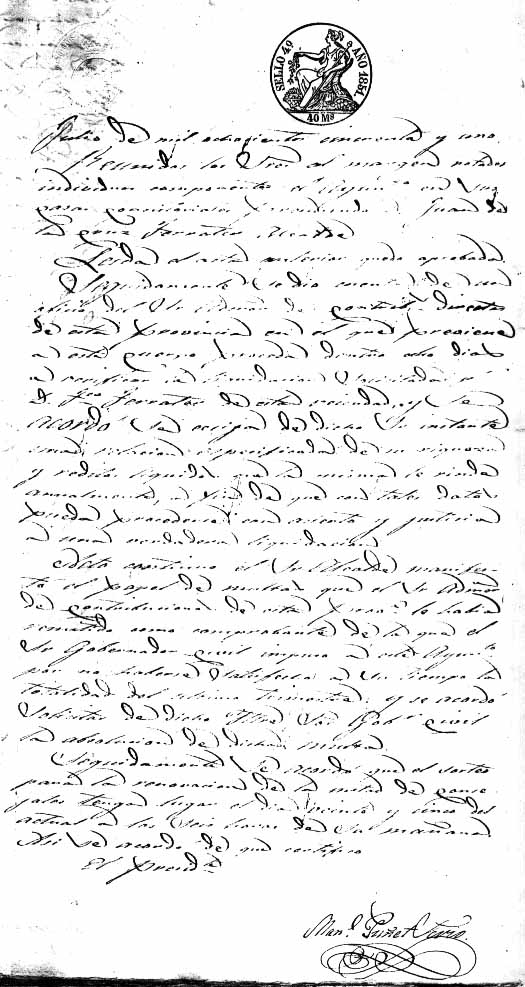 SELLO 4º AÑO 1851.
40 Ms
Julio de mil ochocientos cincuenta y uno.
Reunidos los Sres al margen notados
individuos componentes el Ayunto en sus
casas consistoriales presidiendo D. Juan de
la Cruz Ferrater Alcalde
Leida el acta anterior quedo aprobada.
Seguidamente se dio cuenta de un
oficio del Sr Admon de contribs directas
de esta provincia en el que previene
a este cuerpo proceda dentro ocho dias
a verificar la liquidacion solicitada pr
D. Fco Ferrater de esta vecindad, y se
acordó se exija de dicho Sr instante
una relacion especificada de su riqueza
y redito liquido que la misma le rinde
anualmente, a fin de que con tales datos
pueda procederse con acierto y justicia
a una verdadera liquidacion
Acto continuo el Sr Alcalde manifes-
tó el papel de multas que el Sr Admor
de contribuciones de esta Prova le habia
remitido como comprobante de la que el
Sr Gobernador civil impuso a este Ayunto
por no haberse satisfecho a su tiempo la
totalidad del ultimo trimestre; y se acordó
solicitar de dicho Sr Gobr civil
la absolucion de dicha multa.
Seguidamente se acordó que el sorteo
para la renovacion de la mitad de conce-
jales tenga lugar el dia veinte y cinco del
actual a las seis horas de su mañana
Asi se acordo de que certifico
El Presidte
Manl. Srio.